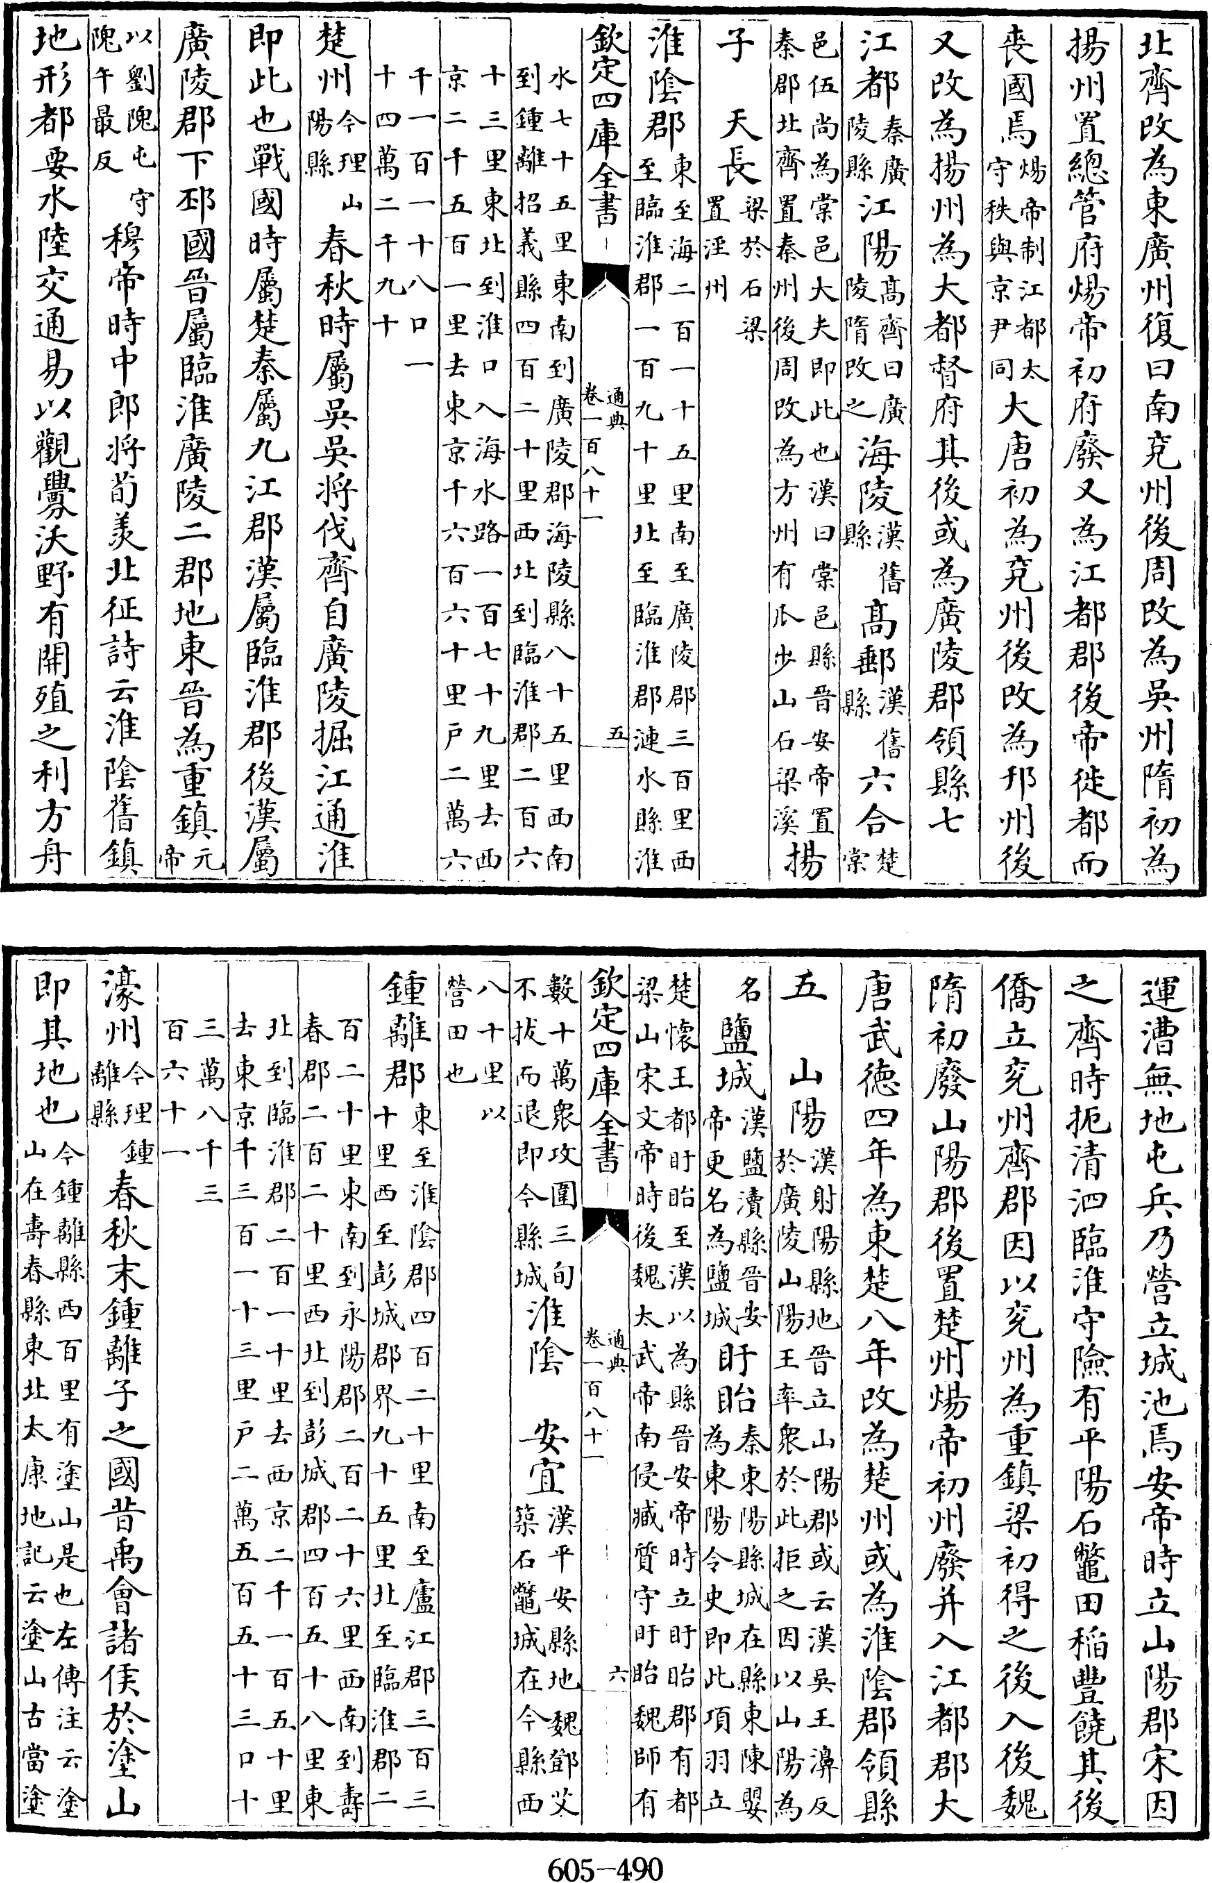 北齊改為東廣州復曰南兗州後周改為吳州隋初為
揚州置總管府煬帝初府廢又為江都郡後帝徙都而
喪國焉煬帝制江都太守秩與京尹同大唐初為兗州後改為邗州後
又改為揚州為大都督府其後或為廣陵郡領縣七
江都秦廣陵縣江陽髙齊曰廣陵隋改之海陵漢舊縣髙郵漢舊縣六合楚棠
邑伍尚為棠邑大夫即此也漢曰棠邑縣晉安帝置秦郡北齊置秦州後周改為方州有瓜步山石梁溪揚
子 天長梁於石梁置涇州
淮陰郡東至海二百一十五里南至廣陵郡三百里西至臨淮郡一百九十里北至臨淮郡漣水縣淮
欽定四庫全書 通典卷一百八十一 五
水七十五里東南到廣陵郡海陵縣八十五里西南到鍾離招義縣四百二十里西北到臨淮郡二百六
十三里東北到淮口入海水路一百七十九里去西京二千五百一里去東京千六百六十里戸二萬六
千一百一十八口一十四萬二千九十
楚州今理山陽縣 春秋時屬吳吳將伐齊自廣陵掘江通淮
即此也戰國時屬楚秦屬九江郡漢屬臨淮郡後漢屬
廣陵郡下邳國晉屬臨淮廣陵二郡地東晉為重鎮元帝
以劉隗屯守隗午最反 穆帝時中郎將荀羨北征詩云淮陰舊鎮
地形都要水陸交通易以觀釁沃野有開殖之利方舟
運漕無地屯兵乃營立城池焉安帝時立山陽郡宋因
之齊時扼清泗臨淮守險有平陽石鼈田稻豐饒其後
僑立兗州齊郡因以兗州為重鎮梁初得之後入後魏
隋初廢山陽郡後置楚州煬帝初州廢并入江都郡大
唐武徳四年為東楚八年改為楚州或為淮陰郡領縣
五 山陽漢射陽縣地晉立山陽郡或云漢吳王濞反於廣陵山陽王率衆於此拒之因以山陽為
名鹽城漢鹽瀆縣晉安帝更名為鹽城盱眙秦東陽縣城在縣東陳嬰為東陽令史即此項羽立
楚懷王都盱眙至漢以為縣晉安帝時立盱眙郡有都梁山宋文帝時後魏太武帝南侵臧質守盱眙魏師有
欽定四庫全書 通典卷一百八十一 六
數十萬衆攻圍三旬不拔而退即今縣城淮陰 安宜漢平安縣地魏鄧艾築石鼈城在今縣西
八十里以營田也
鍾離郡東至淮陰郡四百二十里南至廬江郡三百三十里西至彭城郡界九十五里北至臨淮郡二
百二十里東南到永陽郡二百二十六里西南到壽春郡二百二十里西北到彭城郡四百五十八里東
北到臨淮郡二百一十里去西京二千一百五十里去東京千三百一十三里戸二萬五百五十三口十
三萬八千三百六十一
濠州今理鍾離縣 春秋末鍾離子之國昔禹會諸侯於塗山
即其地也今鍾離縣西百里有塗山是也左傳注云塗山在壽春縣東北太康地記云塗山古當塗
605-490